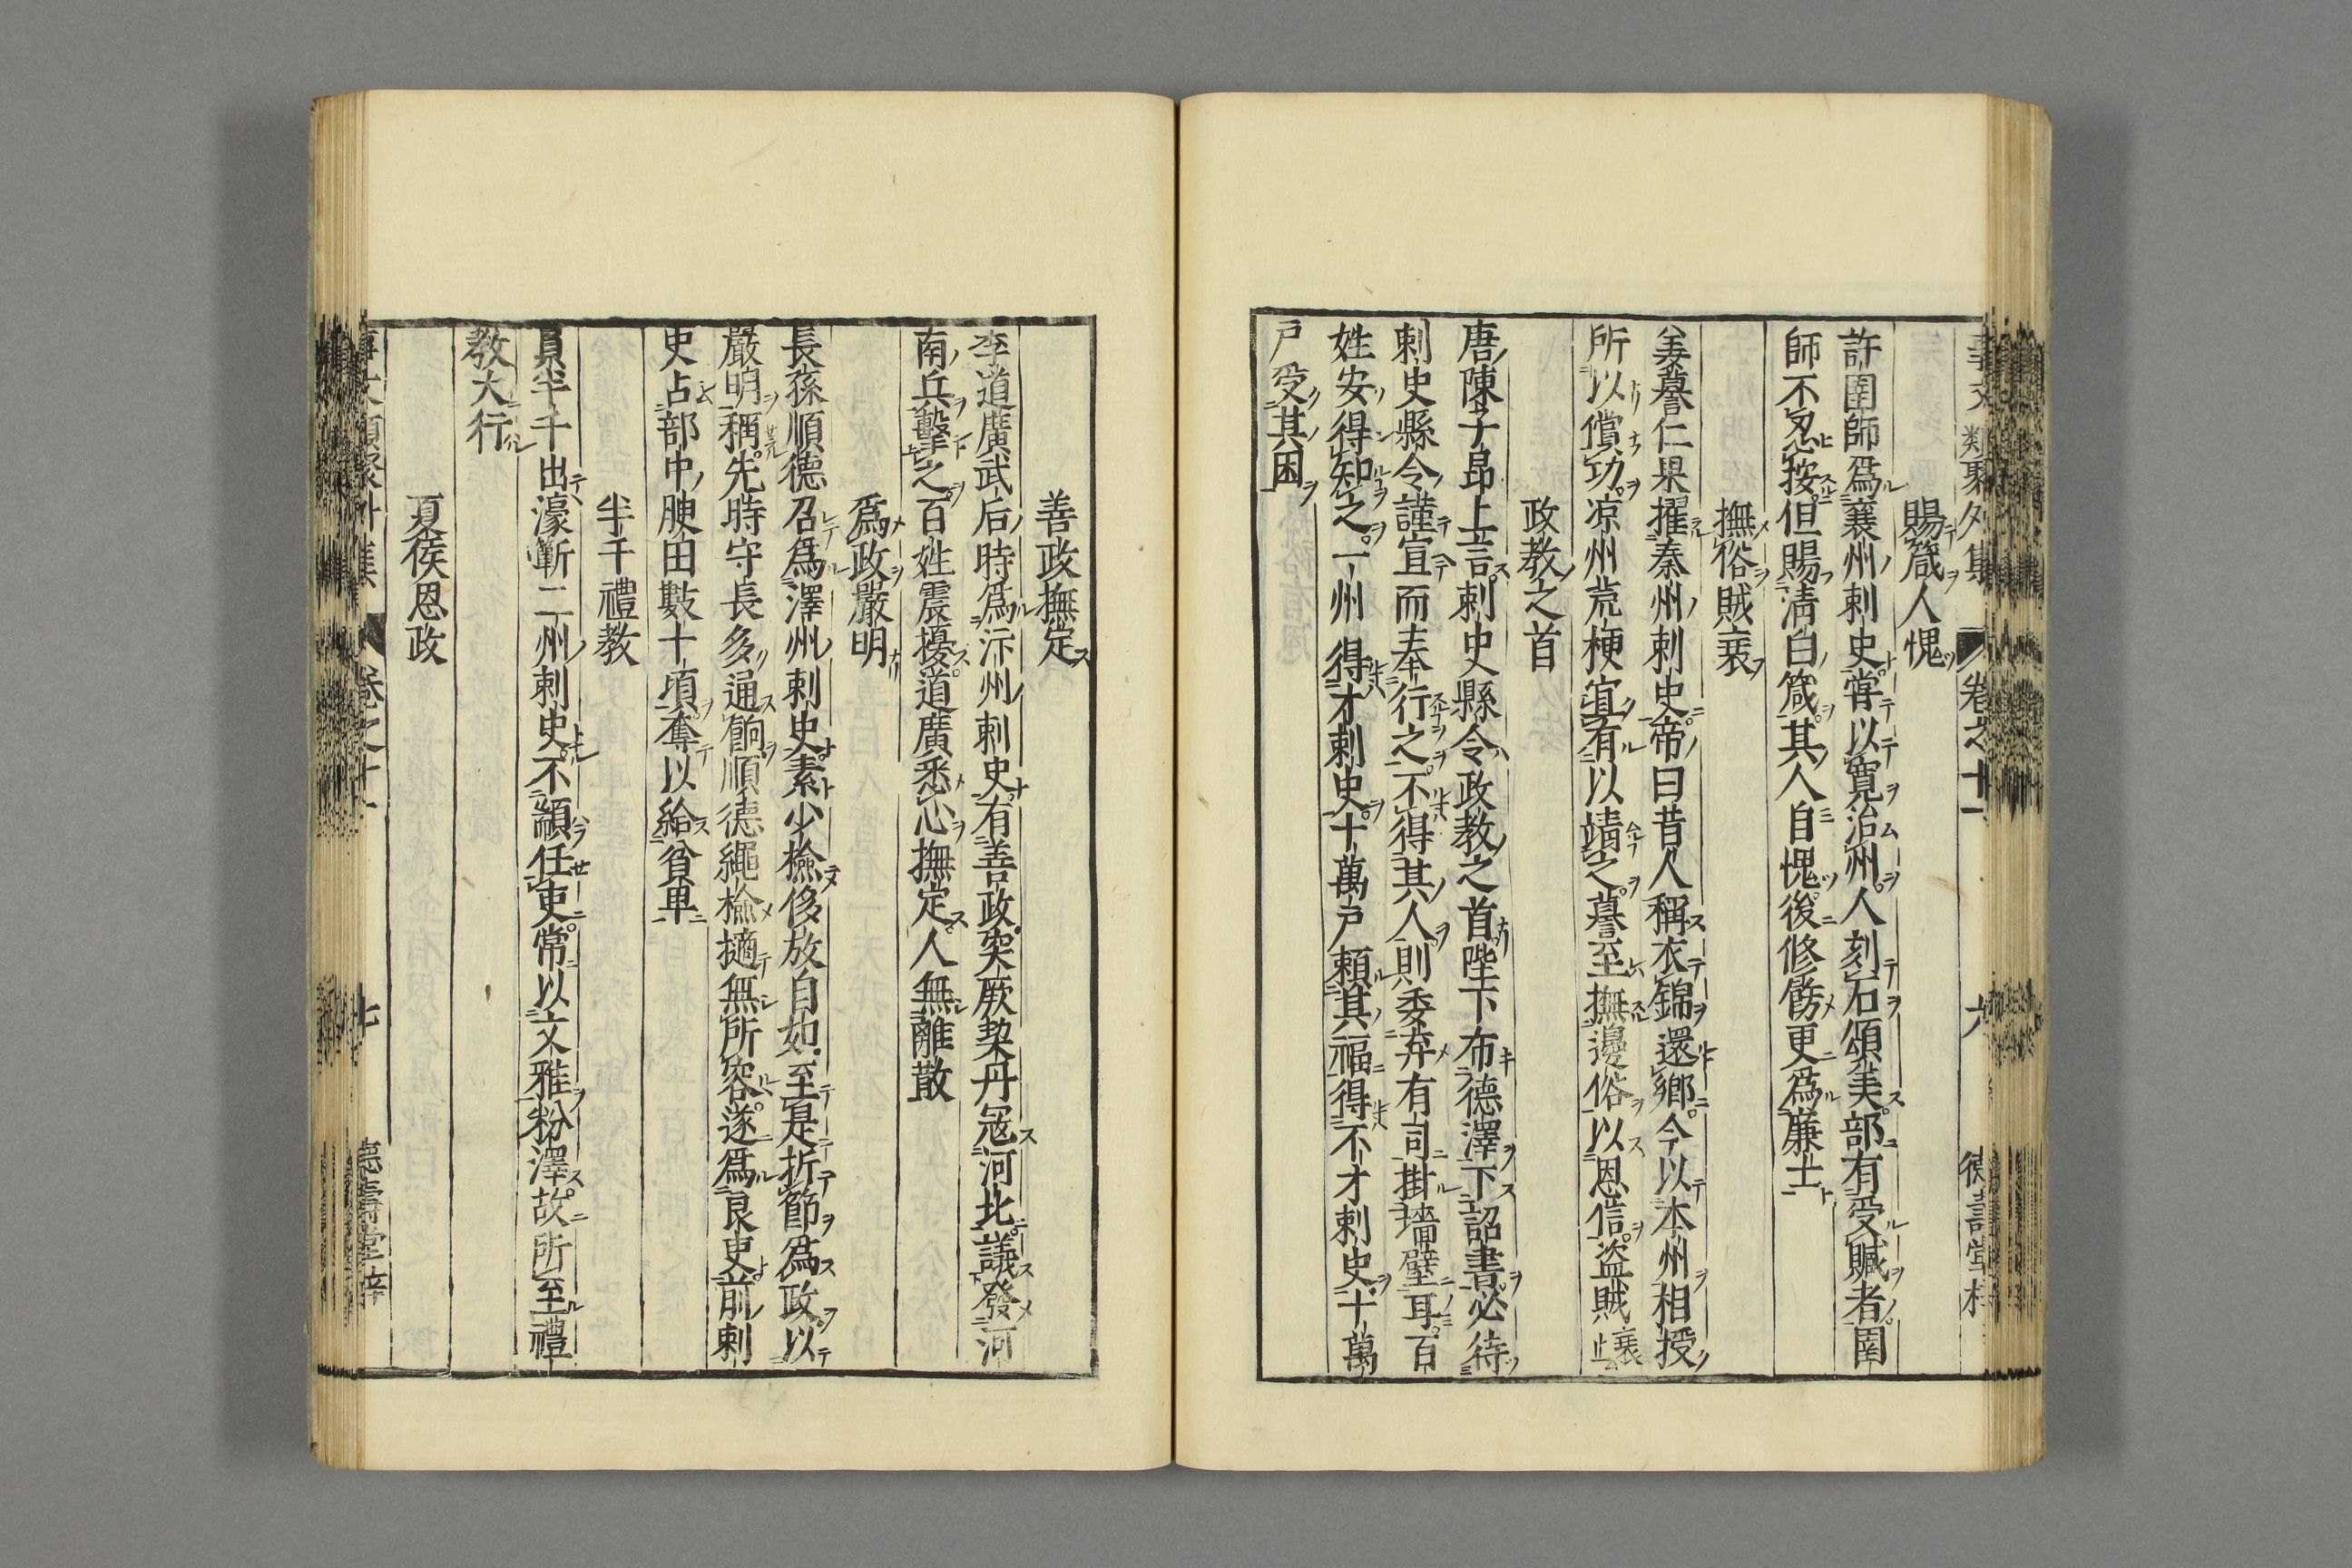 賜箴人愧
許圉師爲襄州刺史嘗以寬治州人刻石頌美部有受贓者圉
師不忍按但賜清白箴其人自愧後修飭更爲廉士
撫俗賊衰
姜謩仁果擢秦州刺史帝曰昔人稱衣錦還鄉今以本州相授
所以償功凉州荒梗宜有以靖之謩至撫邊俗以恩信盜賊衰止
政教之首
唐陳子昂上言刺史縣令政教之首陛下布德澤下詔書必待
刺史縣令謹宣而奉行之不得其人則委弃有司掛墻壁耳百
姓安得知之一州得才刺史十萬戶賴其福得不才刺史十萬
戶受其困
善政撫定
李道廣武后時爲汴州刺史有善政突厥契丹寇河北議發河
南兵擊之百姓震擾道廣悉心撫定人無離散
爲政嚴明
長孫順德召爲澤州刺史素少檢侈放自如至是折節爲政以
嚴明稱先時守長多通餉順德繩檢擿無所容遂爲良吏前刺
史占部中腴田數十頃奪以給貧單
半千禮教
員半千出濠蘄二州刺史不顓任吏常以文雅粉澤故所至禮
教大行
夏侯恩政
卷之十一
七
德壽堂梓